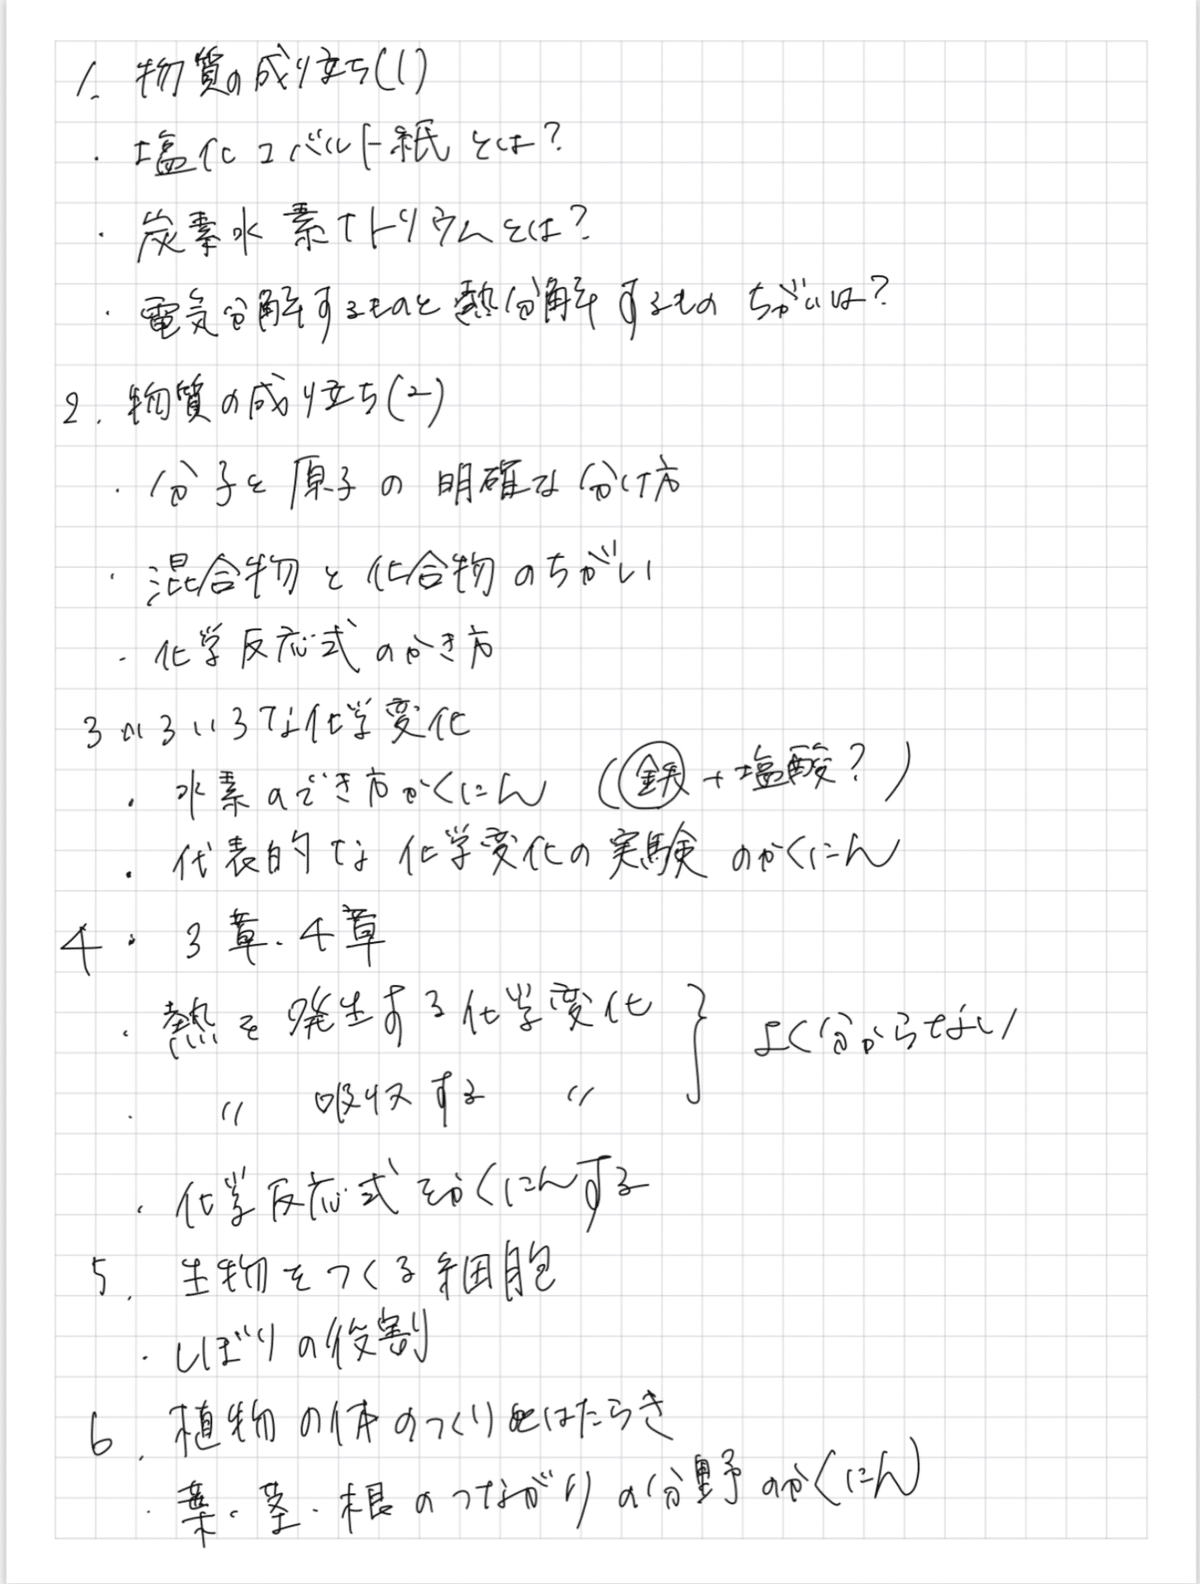 1. 物質の成り立ち(1)
・塩化コバルト紙とは?
・炭素水素ナトリウムとは?
・電気分解するものと熱分解するもの ちがいは?
2. 物質の成り立ち(2)
・分子と原子の明確な分け方
・混合物と化合物のちがい
・化学反応式のかき方
3 いろいろな化学変化
・水素のでき方かくにん (鉄+塩酸?)
・代表的な化学変化の実験のかくにん
4・3章・4章
・熱を発生する化学変化 } よく分からない
・〃 吸収する 〃
・化学反応式をかくにんする
5. 生物をつくる細胞
・しぼりの役割
6. 植物の体のつくりとはたらき
・葉・茎・根のつながりの分野のかくにん